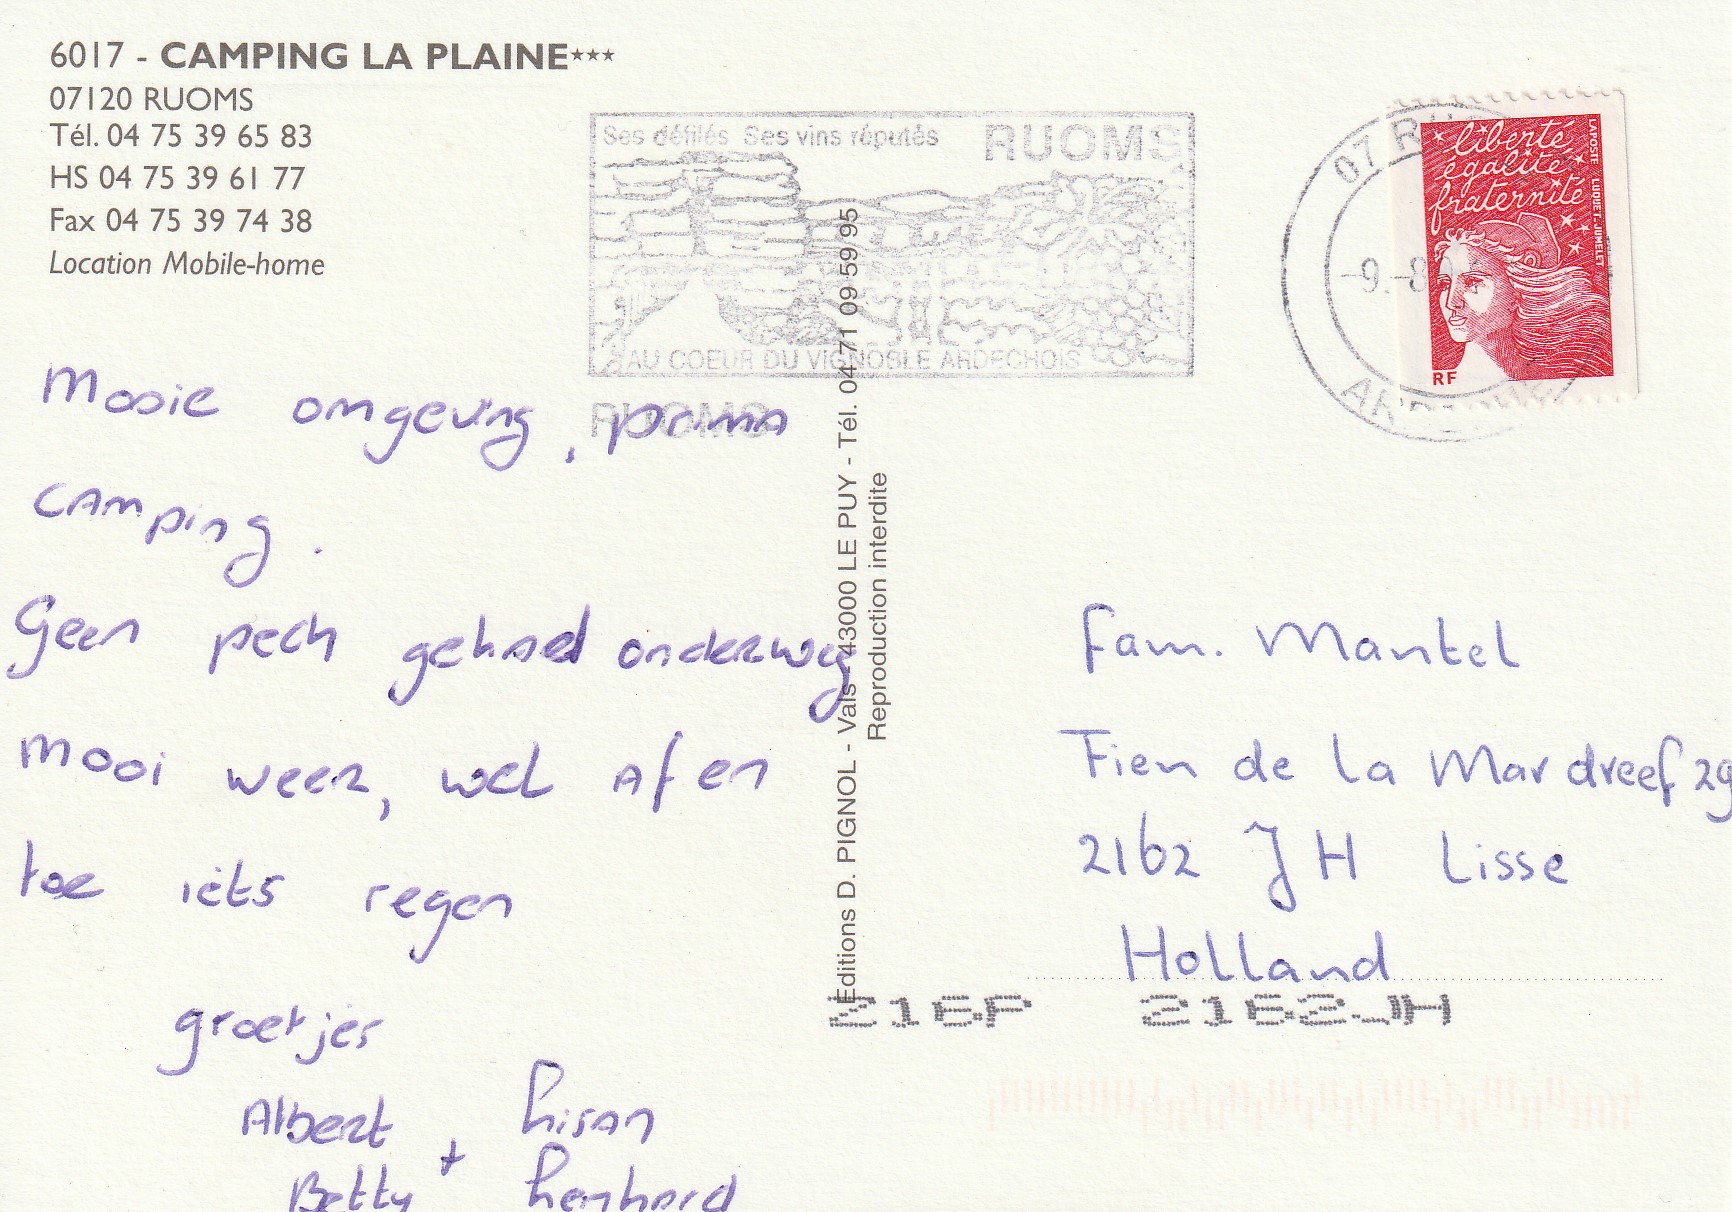 6017 - CAMPING LA PLAINE***
07120 RUOMS
Tél. 04 75 39 65 83
HS 04 75 39 61 77
Fax 04 75 39 74 38
Location Mobile-home
Ses défilés Ses vins réputés RUOMS
AU COEUR DU VIGNOBLE ARDECHOIS
RUOMS
07
-9.-8
liberté
égalité
fraternité
LA POSTE LUQUET-JUMELET
RF
Mooie omgeving, prima
camping.
Geen pech gehad onderweg
mooi weer, wel af en
toe iets regen
groetjes
Albert
Betty +
Editions D. PIGNOL - Vals - 43000 LE PUY - Tél. 04 71 09 59 95
Reproduction interdite
fam. Mantel
Fien de la Mar dreef 29
2162 JH Lisse
Holland
216P 2162JH